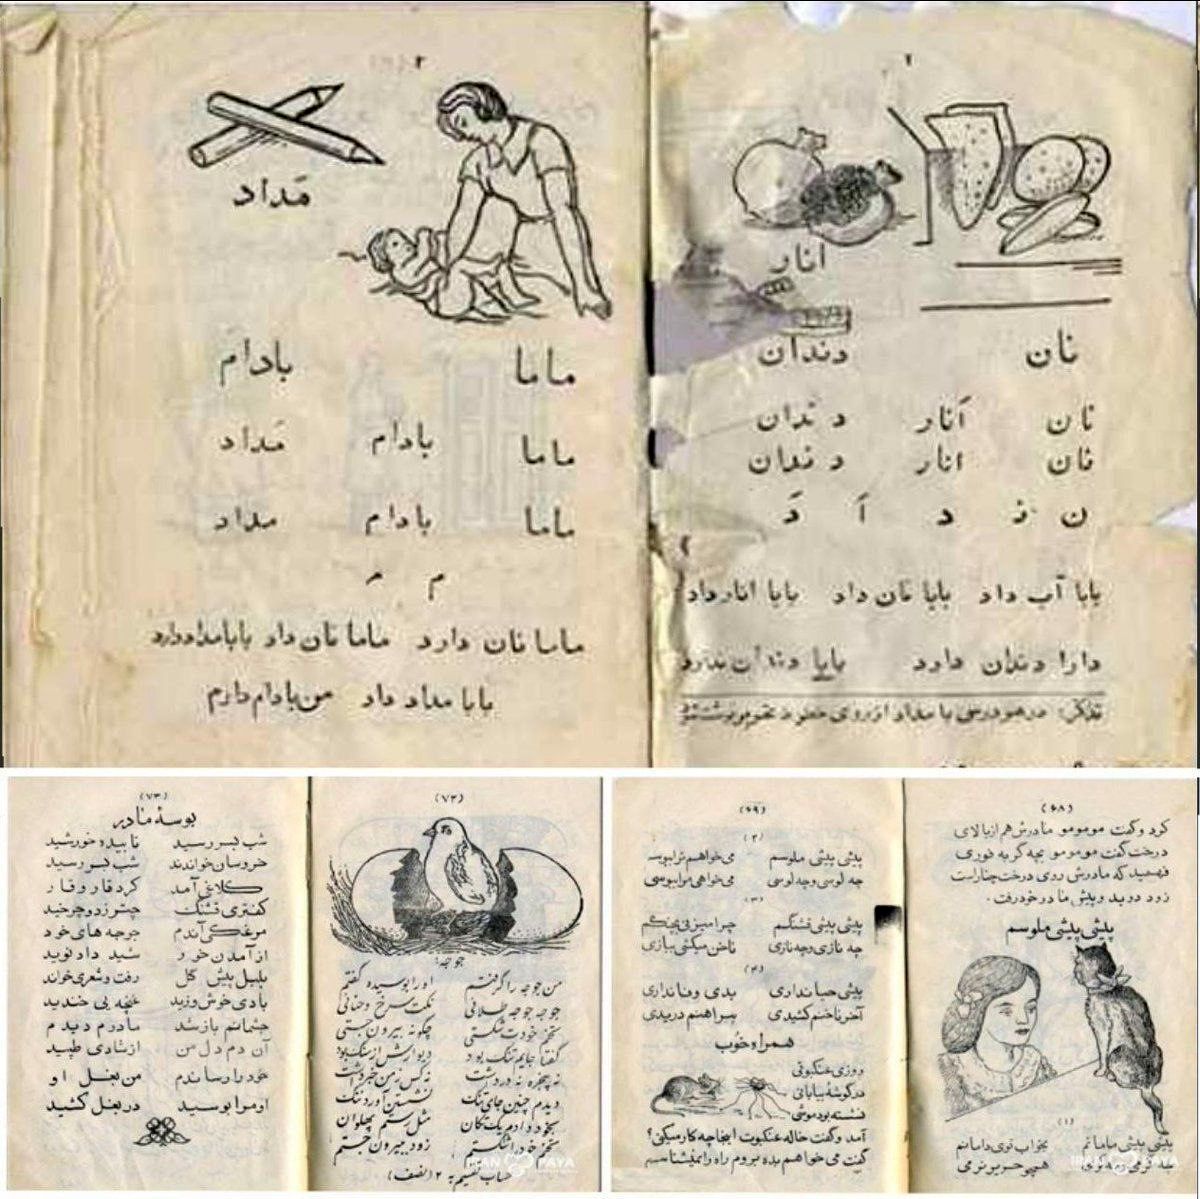 ۱
انار
نان دندان
نان اَنار دندان
نان انار دندان
ن ن د اَ دَ
بابا آب داد بابا نان داد بابا انار داد
دارا دندان دارد بابا دندان ندارد
تذکر: در هر درسی با مداد از روی خطوط
۲
مَداد
ماما بادام
ماما بادام مَداد
ماما بادام مداد
م م
ماما نان دارد ماما نان داد بابا مداد دارد
بابا مداد داد من بادام دارم
(۷۲)
جوجه
من جوجه را گرفتم او را بوسیده گفتم
جوجه جوجه طلائی نکت سرخ و حنائی
تخم خود شکستی چگونه بیرون جستی
گفتا جایم تنگ بود دیوارش از سنگ بود
نه پنجره نه در داشت نه کس ز من خبر داشت
دیدم چنین جای تنگ نشستن آورد ننگ
بخود دادم یک تکان مثل رستم پهلوان
تخم خود را شکستم زود بیرون جستم
حساب تقسیم به ۲ (نصف)
(۷۳)
بوسهٔ مادر
شب بسر رسید تابیده خورشید
خروسان خواندند شب بسر رسید
کلاغی آمد کرد قار و قار
کفتری قشنگ چتر زد و چرخید
مرغکی آندم جوجه های خود
از آمدن خور شید داد نوید
بلبل پیش گل رفت و شعری خواند
بادی خوش وزید غنچه بی خندید
چشمانم باز شد مادرم دیدم
آن دم دل من از شادی طپید
خود را رساندم من بغل او
او مرا بوسید در بغل کشید
(۶۸)
کرد و گفت مومومو مادرش هم از بالای
درخت گفت مومومو بچه گربه فوری
فهمید که مادرش روی درخت چنار است
زود دوید و پیش مادر خود رفت.
پیشی پیشی ملوسم
(۱)
پیشی پیشی مامانم بخواب توی دامانم
همچو حریر نرمی
(۶۹)
(۲)
پیشی پیشی ملوسم می خواهم ترا ببوسم
چه لوسی و چه لوسی می خواهی مرا ببوسی
(۳)
پیشی پیشی قشنگم چرا میزنی بچنگم
چه نازی و چه نازی ناخن میکشی ببازی
(۴)
پیشی حیا نداری بدی وفا نداری
آخر ناخنم کشیدی پیراهنم دریدی
همراه خوب
روزی عنکبوتی
در گوشهٔ بیابانی
نشسته بود موشی
آمد و گفت خاله عنکبوت اینجا چه کار میکنی؟
گفت می خواهم بده بروم راه را نمیشناسم
IRAN PAYA
IRAN PAYA